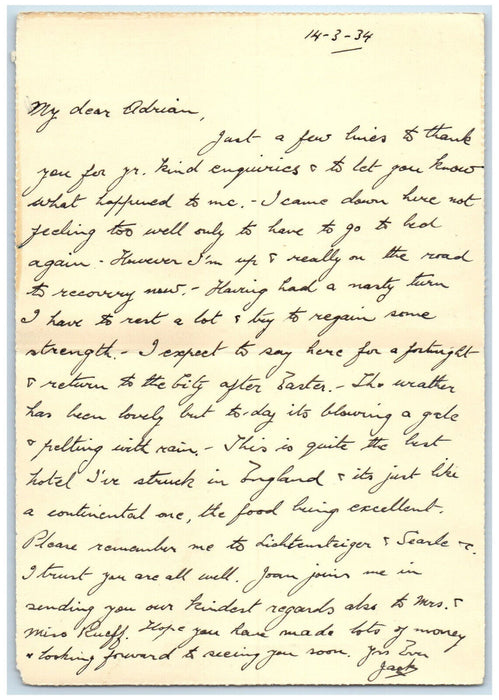 14-3-34
My dear Adrian,
Just a few lines to thank
you for yr. kind enquiries & to let you know
what happened to me. - I came down here not
feeling too well only to have to go to bed
again. - However I'm up & really on the road
to recovery now. - Having had a nasty turn
I have to rest a lot & try to regain some
strength. - I expect to say here for a fortnight
& return to the City after Easter. - The weather
has been lovely but to-day its blowing a gale
& pelting with rain. - This is quite the best
hotel I've struck in England & its just like
a continental one, the food being excellent.
Please remember me to Lichtensteiger & Searle &c.
I trust you are all well. Joan joins me in
sending you our kindest regards also to Mrs. &
Miss Rueff. Hope you have made lots of money
& looking forward to seeing you soon. Yrs Ever
Jack